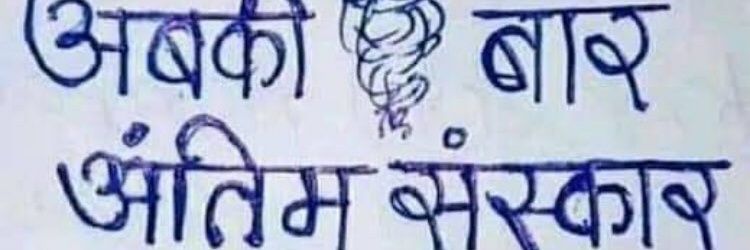 अबकी बार
अंतिम संस्कार